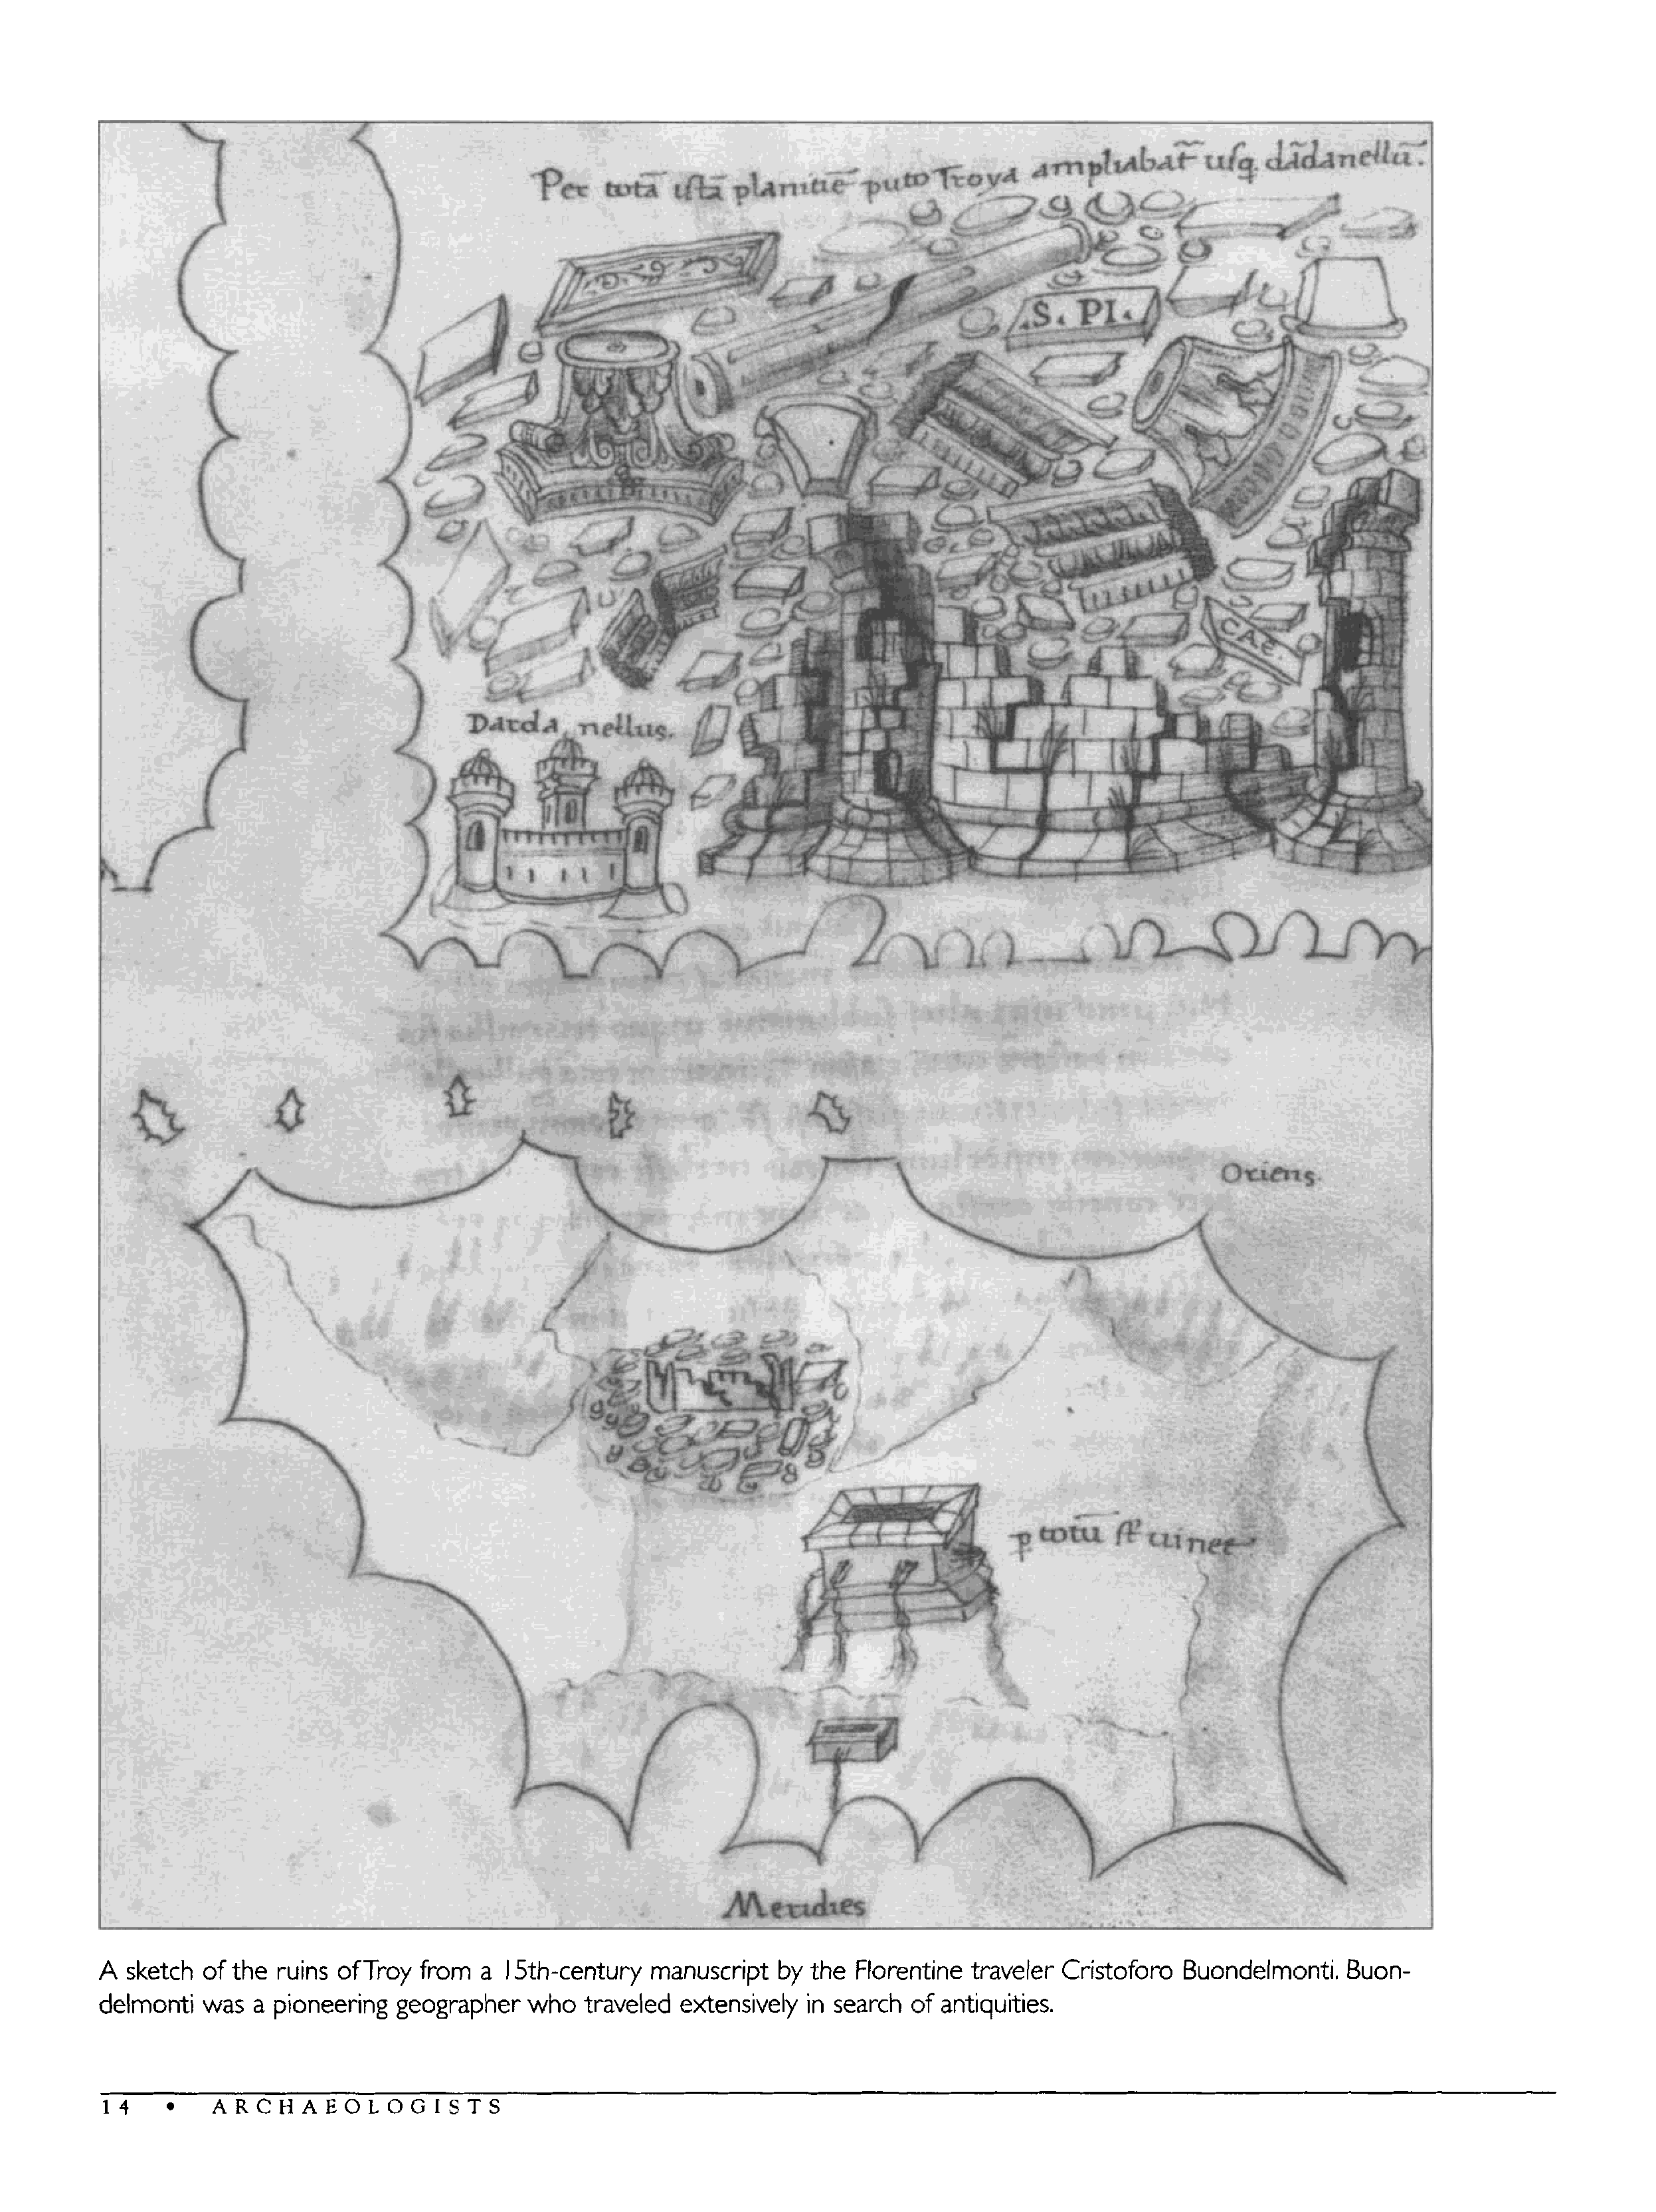 Per totā istā planitiē puto Troya ampliabat̄ usq. dādanellū.
.S. PI.
CAE.
Darda nellus.
Oriens.
p totū st̄ uinee
Meridies
A sketch of the ruins of Troy from a 15th-century manuscript by the Florentine traveler Cristoforo Buondelmonti. Buon-
delmonti was a pioneering geographer who traveled extensively in search of antiquities.
14 • ARCHAEOLOGISTS